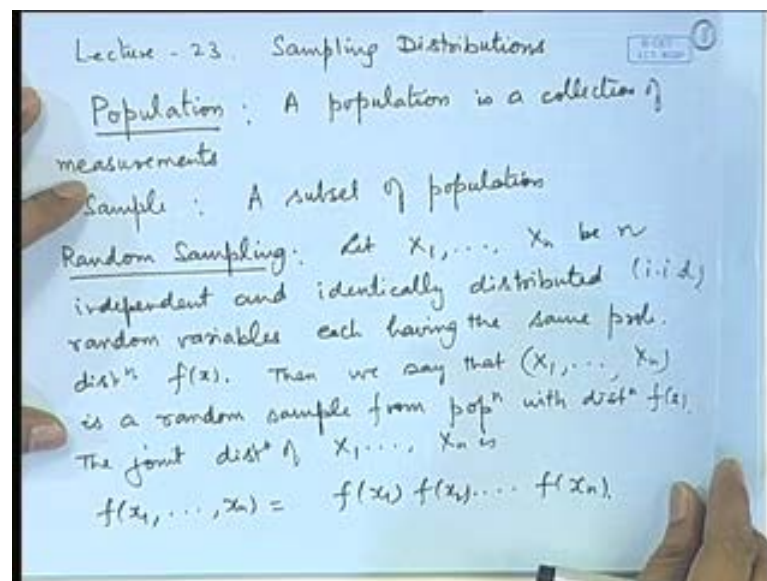 Lecture - 23. Sampling Distributions
Population : A population is a collection of
measurements
Sample : A subset of population
Random Sampling : Let X₁, ..., Xₙ be n
independent and identically distributed (i.i.d.)
random variables each having the same prob.
distⁿ f(x). Then we say that (X₁, ..., Xₙ)
is a random sample from popⁿ with distⁿ f(x).
The joint distⁿ of X₁, ..., Xₙ is
f(x₁, ..., xₙ) = f(x₁) f(x₂) .... f(xₙ).